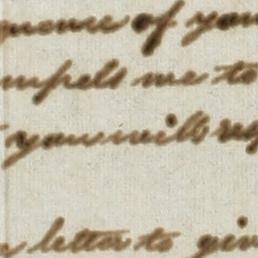 of you
mpels me to
you will reg
letter to giv